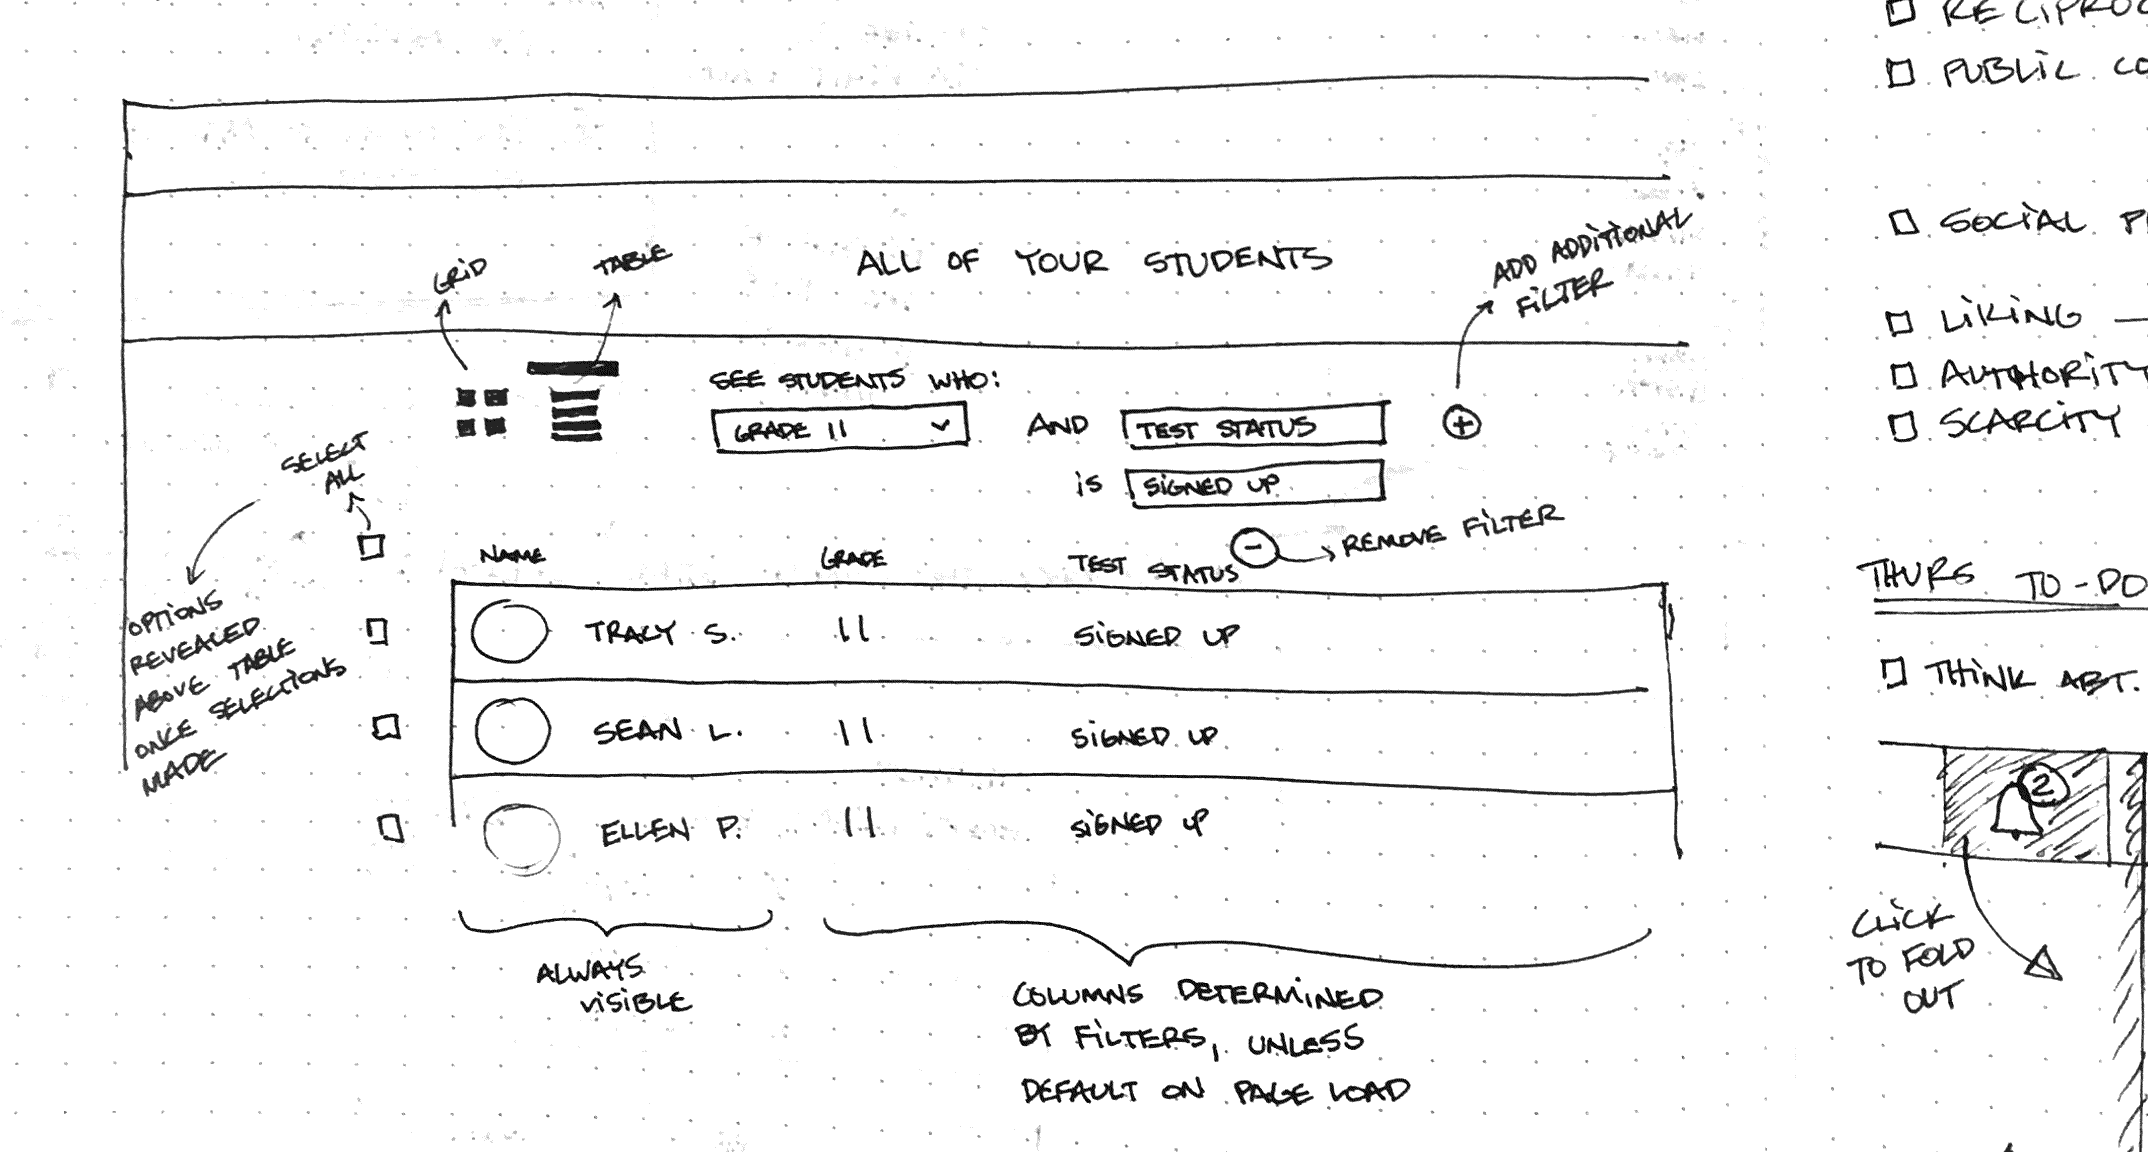 ALL OF YOUR STUDENTS
GRID
TABLE
ADD ADDITIONAL
FILTER
SEE STUDENTS WHO:
GRADE 11
AND
TEST STATUS
+
IS
SIGNED UP
SELECT
ALL
- REMOVE FILTER
OPTIONS
REVEALED
ABOVE TABLE
ONCE SELECTIONS
MADE
NAME GRADE TEST STATUS
TRACY S. 11 SIGNED UP
SEAN L. 11 SIGNED UP
ELLEN P. 11 SIGNED UP
ALWAYS
VISIBLE
COLUMNS DETERMINED
BY FILTERS, UNLESS
DEFAULT ON PAGE LOAD
PUBLIC
SOCIAL
LIKING
AUTHORITY
SCARCITY
THURS TO-DO
THINK ABT.
2
CLICK
TO FOLD
OUT